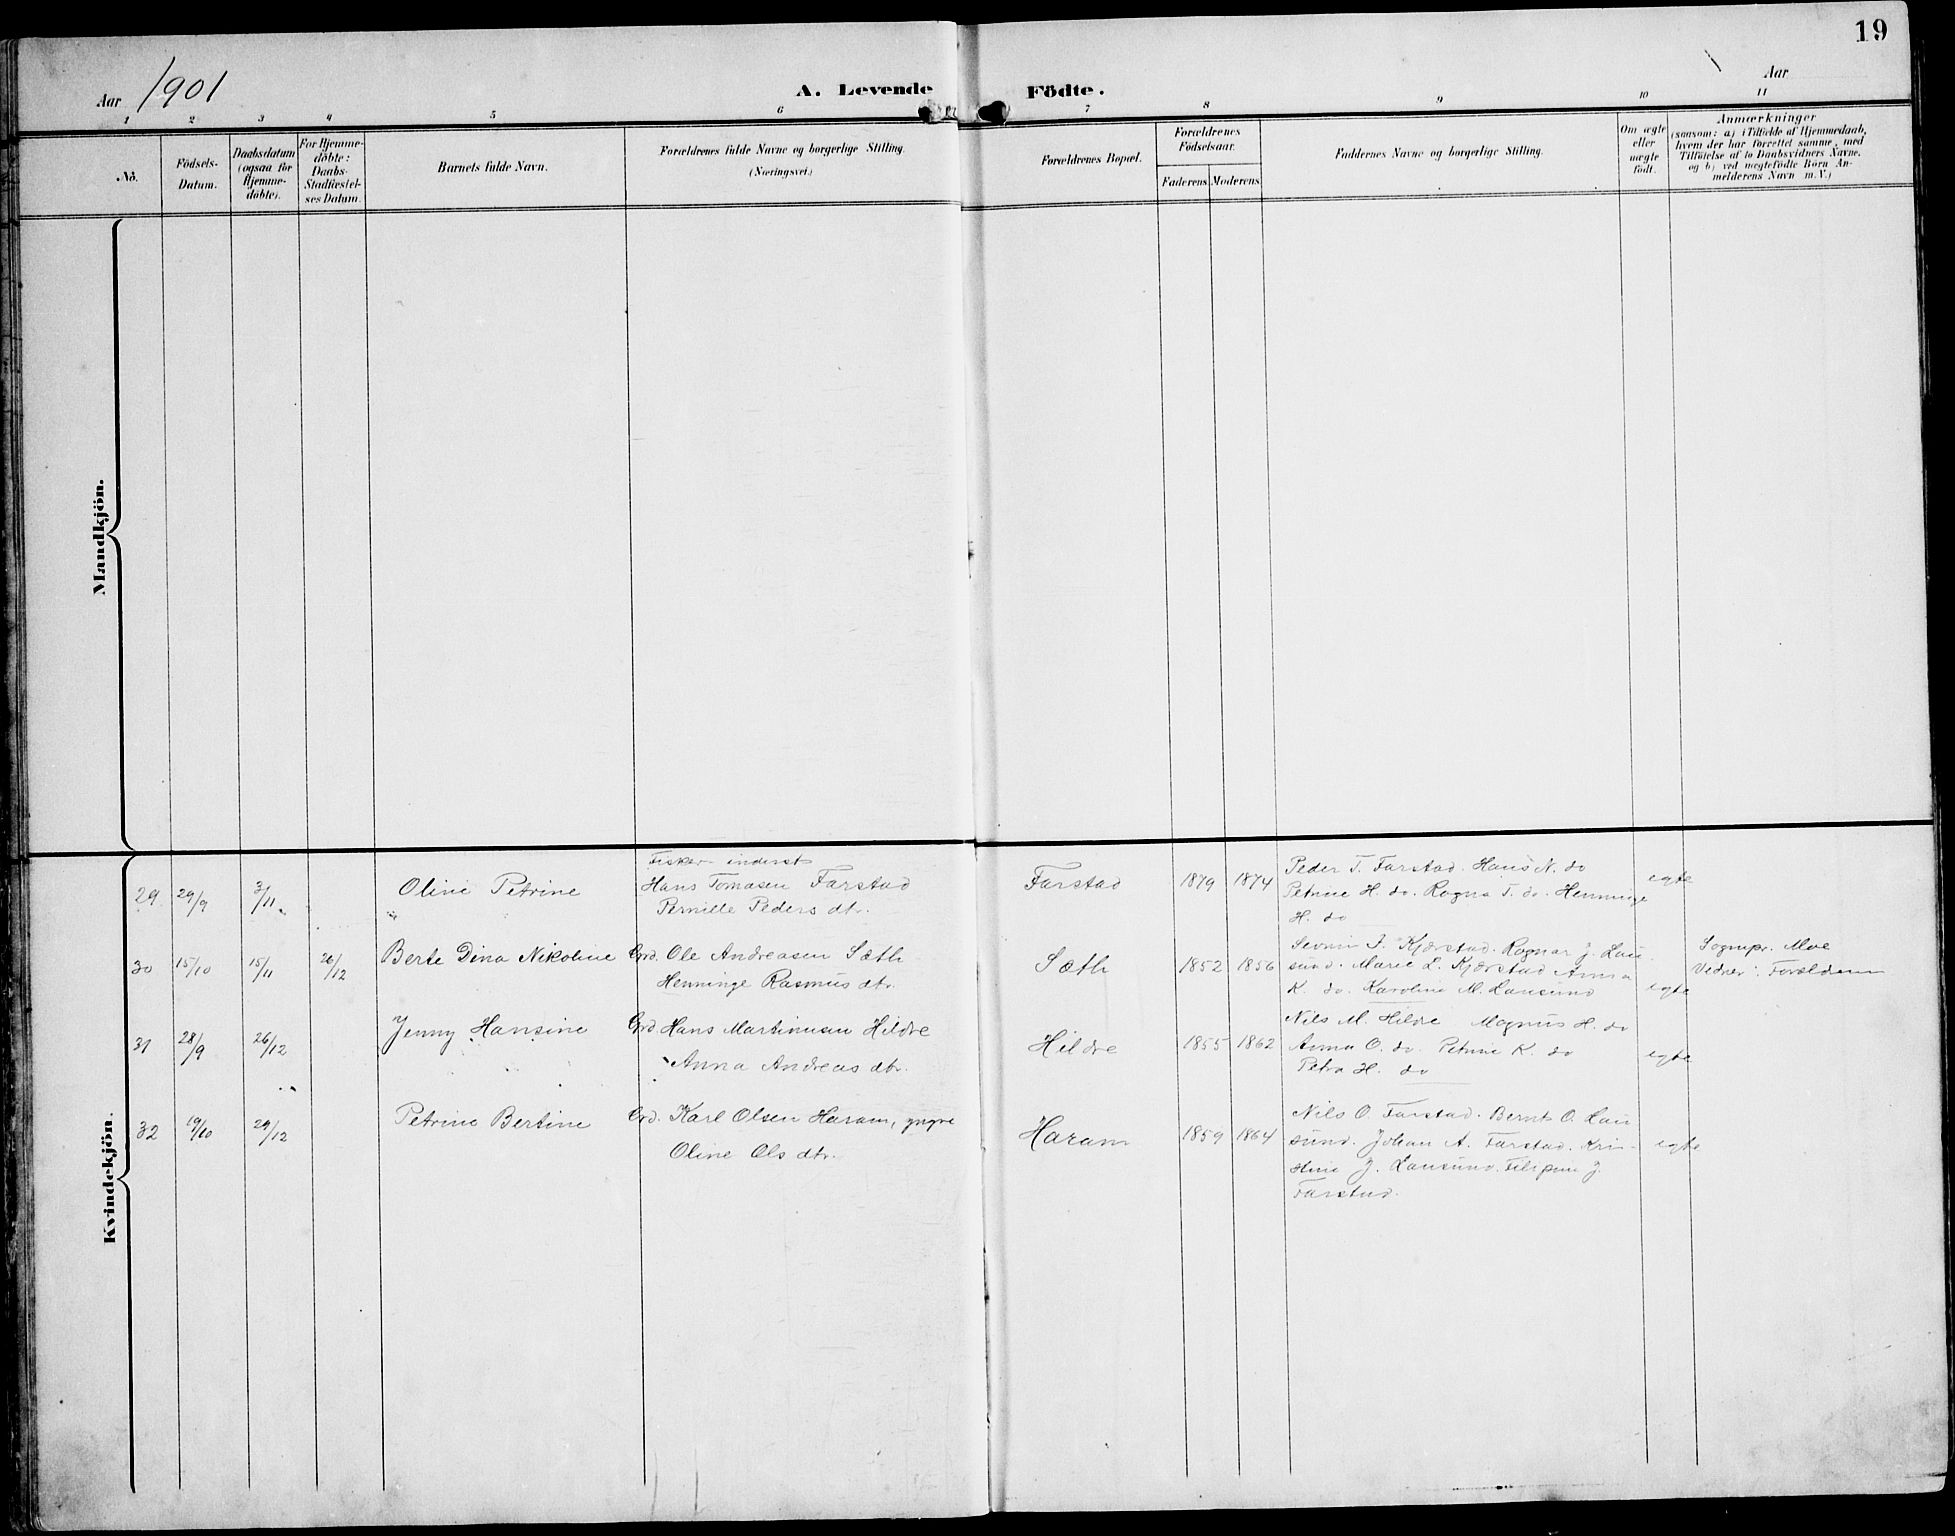 19
Aar 1901
A. Levende Födte.
Aar
1 2 3 4 5 6 7 8 9 10 11
No.
Födsels-
Datum.
Daabsdatum
(ogsaa for
Hjemme-
döbte).
For Hjemme-
döbte:
Daabs-
Stadfæstel-
ses Datum.
Barnets fulde Navn.
Forældrenes fulde Navne og borgerlige Stilling.
(Næringsvei.)
Forældrenes Bopæl.
Forældrenes
Födselsaar.
Faderens Moderens
Faddernes Navne og borgerlige Stilling.
Om ægte
eller
uægte
födt.
Anmærkninger
(saasom: a) i Tilfælde af Hjemmedaab,
hvem der har forrettet samme, med
Tilföielse af to Daabsvidners Navne,
og b) ved uægtefödte Börn An-
melderens Navn m. V.)
Mandkjön.
Kvindekjön.
29 29/9 3/11 Oline Petrine
Fisker inderst
Hans Tomasen Farstad
Pernille Peders dtr.
Farstad 1879 1874
Peder T. Farstad. Hans N. do
Petrine H. do. Ragna T. do. Henninge
H. do
egte
30 15/10 15/11 26/12 Berte Dina Nikoline
Grd. Ole Andreasen Sæth
Henninge Rasmus dtr.
Sæth 1852 1856
Sevrin J. Kjærstad. Ragnar J. Lau-
sund. Marie L. Kjærstad Anna
K. do. Karoline M. Lausund
egte
Sognepr. Moe
Vidner: Forældrene
31 28/9 26/12 Jenny Hansine
Grd. Hans Martinusen Hildre
Anna Andreas dtr.
Hildre 1855 1862
Nils M. Hildre Magnus H. do
Anna O. do. Petrine K. do
Petra H. do
egte
32 19/10 29/12 Petrine Bertine
Grd. Karl Olsen Haram, yngre
Oline Ols dtr.
Haram 1859 1864
Nils O. Farstad. Bernt O. Lau
sund. Johan A. Farstad. Kri-
stine J. Lausund. Filipine J.
Farstad.
egte